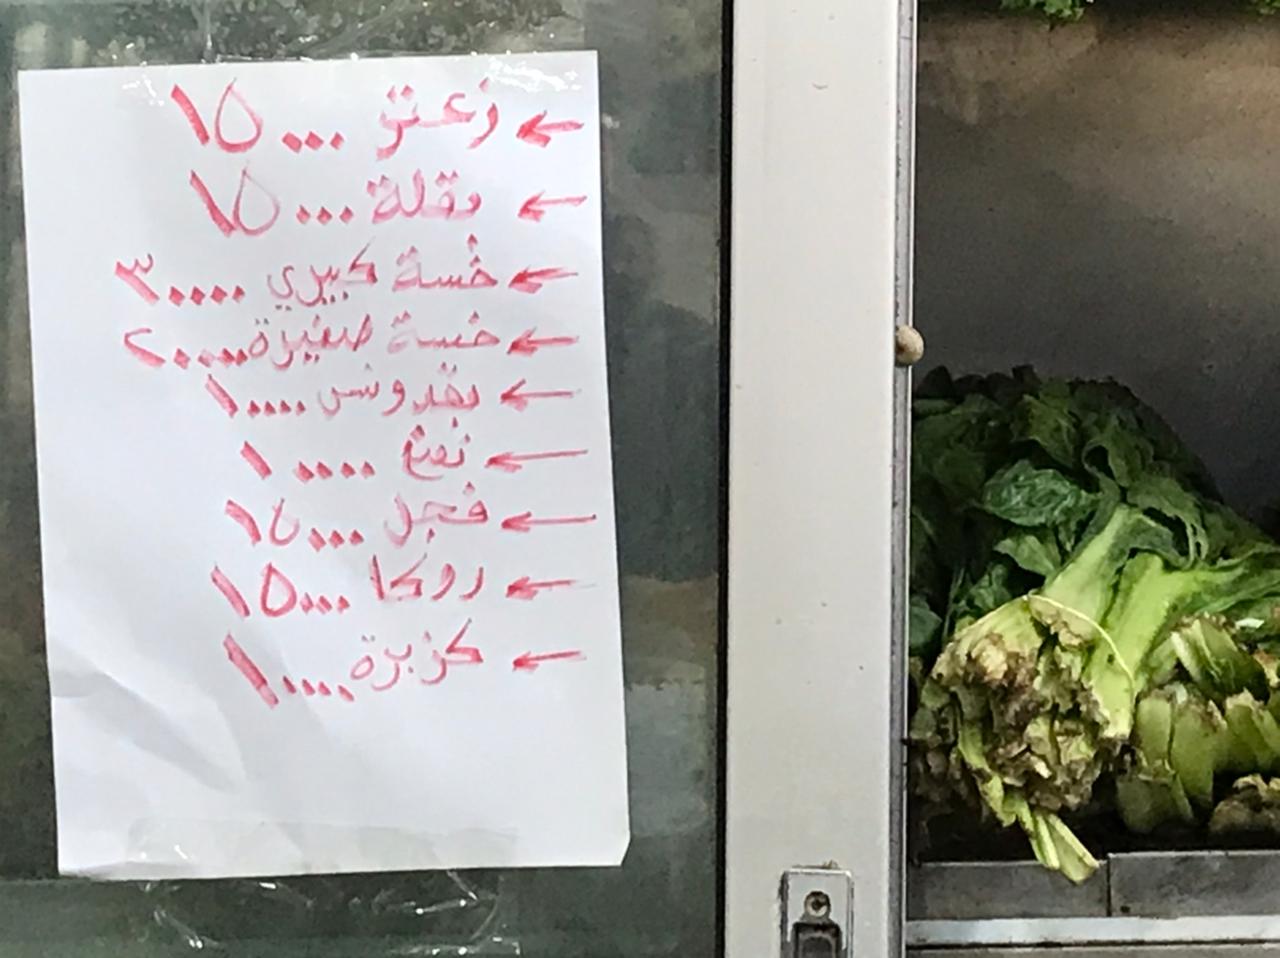 ← زعتر ١٥٠٠٠
← بقلة ١٥٠٠٠
← خسة كبيري ٣٠٠٠٠
← خسة صغيرة ٢٠٠٠٠
← بقدونس ١٠٠٠٠
← نعنع ١٠٠٠٠
← فجل ١٥٠٠٠
← روكا ١٥٠٠٠
← كزبرة ١٠٠٠٠